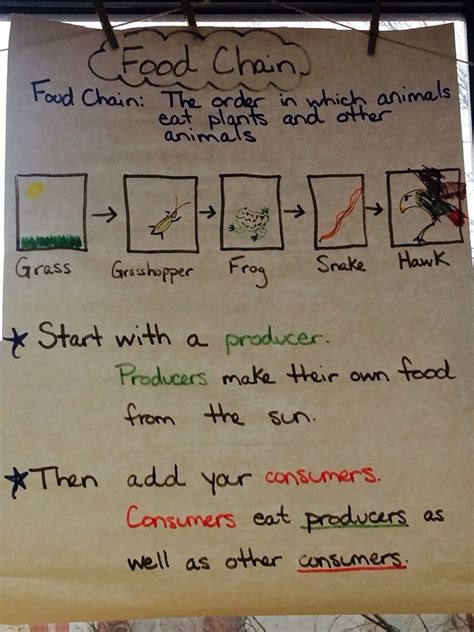 Food Chain
Food Chain: The order in which animals
eat plants and other
animals
Grass Grasshopper Frog Snake Hawk
Start with a producer.
Producers make their own food
from the sun.
Then add your consumers.
Consumers eat producers as
well as other consumers.